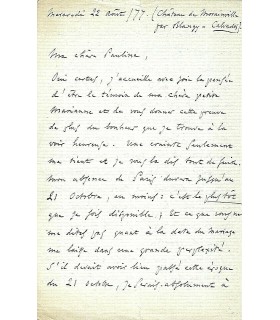 Mercredi 22 août /77. (Château de
par Blangy - Calvados)
Ma chère Pauline,
Oui certes, j'accueille avec joie la pensée
d'être le témoin de ma chère petite
Marianne et de vous donner cette preuve
de plus du bonheur que je trouve à la
voir heureuse. Une crainte seulement
me tient et je vous la dis tout de suite.
mon absence de Paris durera jusqu'au
21 octobre, au moins : c'est le plus tôt
que je sois disponible ; Et ce que vous
me dites quant à la date du mariage
me laisse dans une grande perplexité.
S'il devait avoir lieu cette époque
du 21 octobre, je absolument à